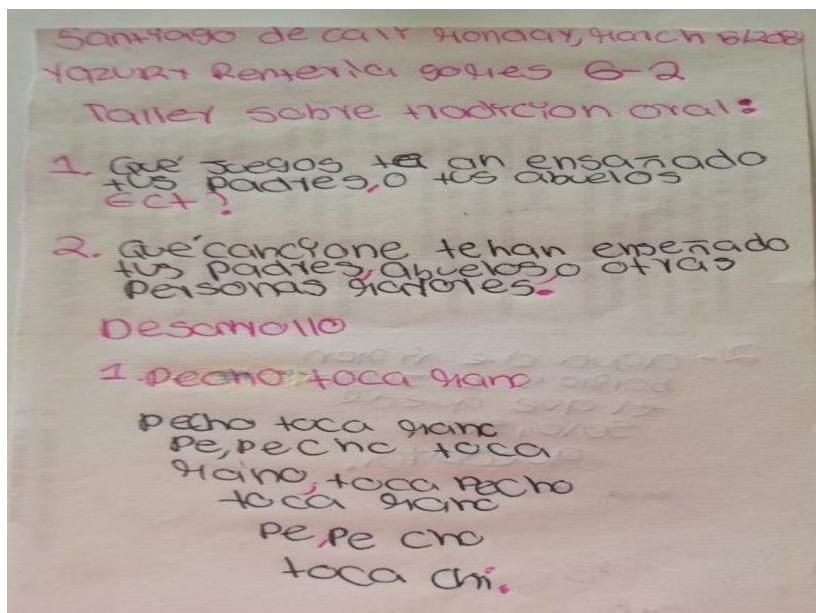 Santiago de cali Monday, March 5/208
Yazury Renteria gomes 6-2
Taller sobre tradicion oral:
1. Qué Juegos te an ensañado
tus padres, o tus abuelos
ECT?
2. Qué cancione tehan enseñado
tus padres, abuelos, o otras
personas mayores.
Desarrollo
1. Pecho toca mano
Pecho toca mano
Pe, pecho toca
mano, toca Pecho
toca mano
Pe, Pe cho
toca chi.